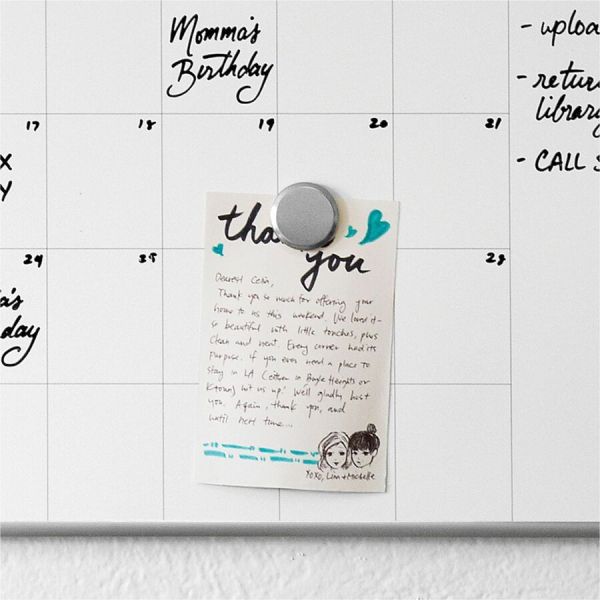 Momma's
Birthday
- uploa
- retur
library
- CALL S
17
18
19
20
21
X
Y
24
25
28
a's
day
tha
you
Dearest Celia,
Thank you so much for offering your
home to us this weekend. We loved it-
so beautiful with little touches, plus
clean and neat. Every corner had its
purpose. If you ever need a place to
stay in LA (either in Boyle Heights or
Ktown) hit us up! We'll gladly host
you. Again, thank you, and
until next time...
XOXO, Lisa + Michelle